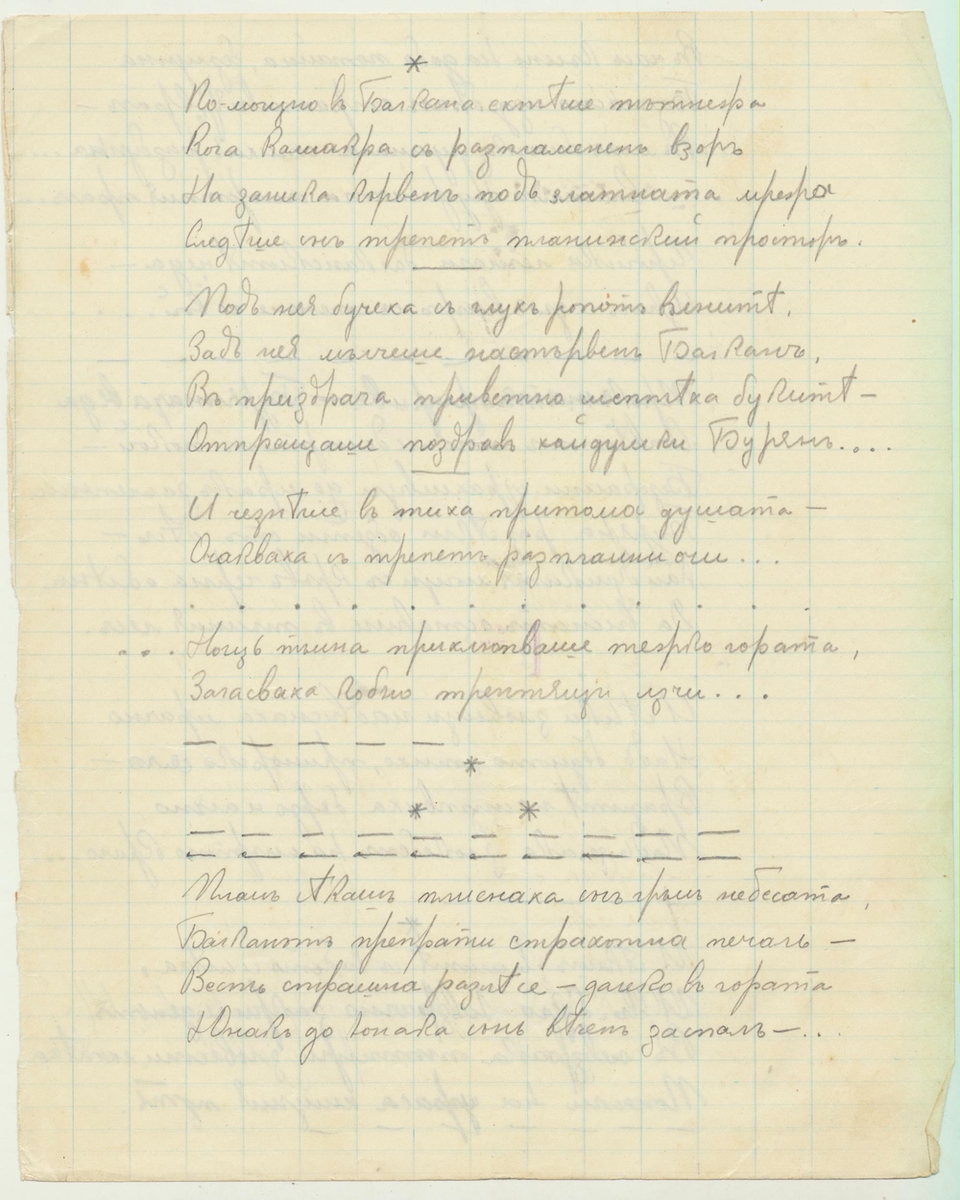 *
По-мощно въ Балкана ектѣше тътнежа
Кога Комакра съ разпламененъ взоръ
На заника кървенъ подъ златната мрежа
Следѣше сън трепетъ планинский просторъ.
Подъ нея бучеха съ глухъ ропотъ вълнитѣ,
Задъ нея мълчеше настървенъ Балканъ,
Въ преиздрача приветно шептѣха букитѣ —
Отпращаше поздравъ хайдушки Бурянъ....
И чезнѣше въ тиха притома душата —
Очакваха съ трепетъ разплакни очи...
. . . . . . . . . . . .
... Нощь тъмна приклюпваше тежко гората,
Загасваха кобно трептящи лъчи...
— — — — —
*
* *
— — — — — — — — — —
— — — — — — — — — —
Плачъ сѣкашъ плиснаха сънъ гръмъ небесата,
Балканътъ препрати страхотна печаль —
Весть страшна разнѣсе — далеко въ гората
Юнакъ до юнака сънь вѣченъ заспалъ —..